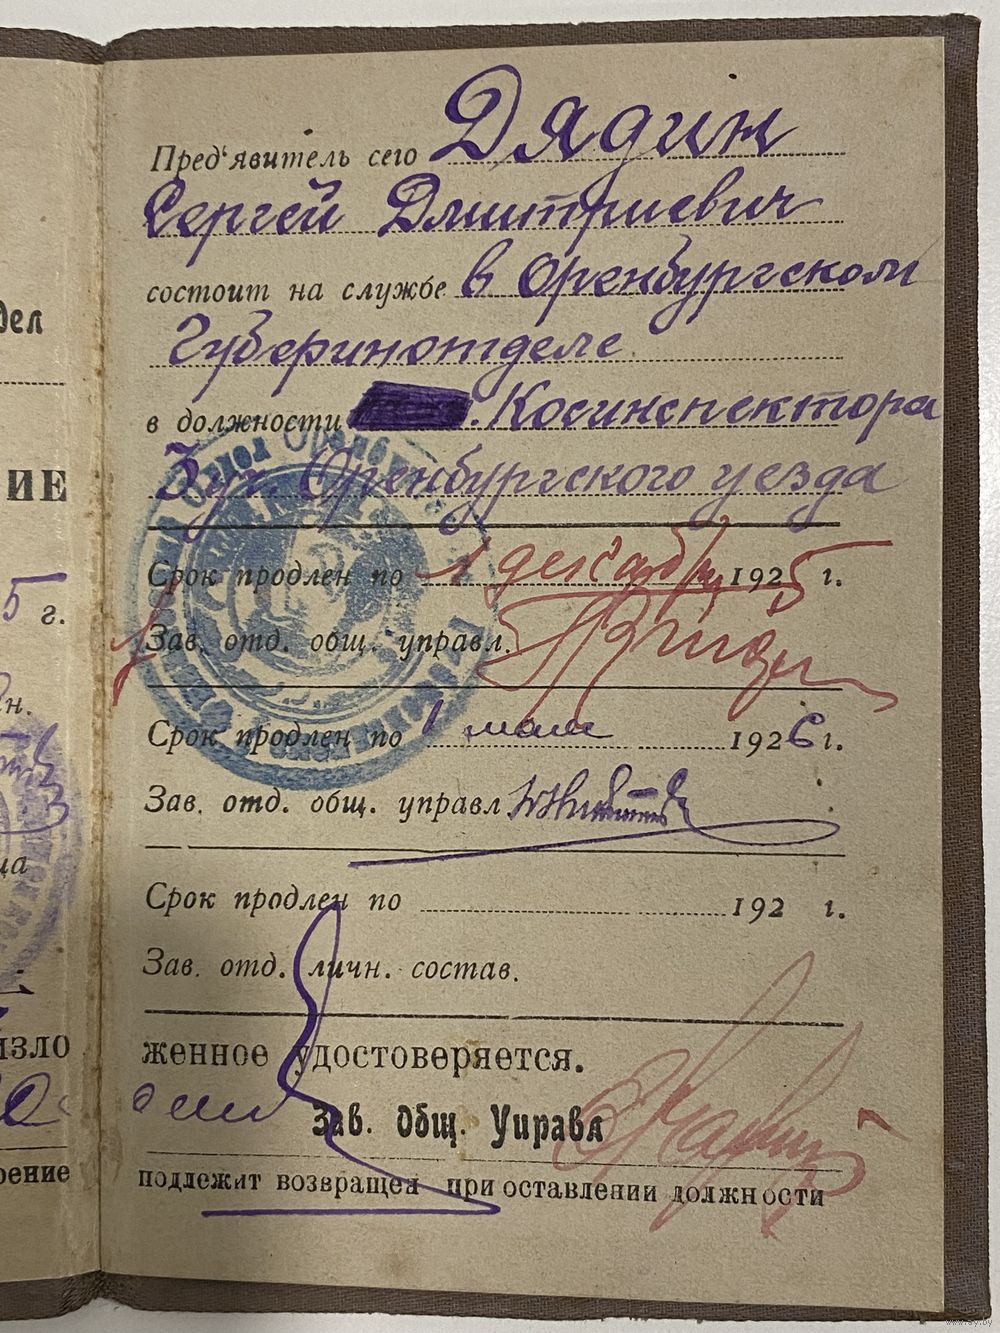 дел
ИЕ
5 г.
Пред'явитель сего Дядин
Сергей Дмитриевич
состоит на службе в Оренбургском
Губфинотделе
в должности Косинспектора
3 уч. Оренбургского уезда
Срок продлен по 1 декабря 1925 г.
Зав. отд. общ. управл.
Срок продлен по 1 мая 1926 г.
Зав. отд. общ. управл
Срок продлен по 192 г.
Зав. отд. личн. состав.
изло женное удостоверяется.
Зав. Общ. Управл
рение подлежит возвращен при оставлении должности
www.ay.by